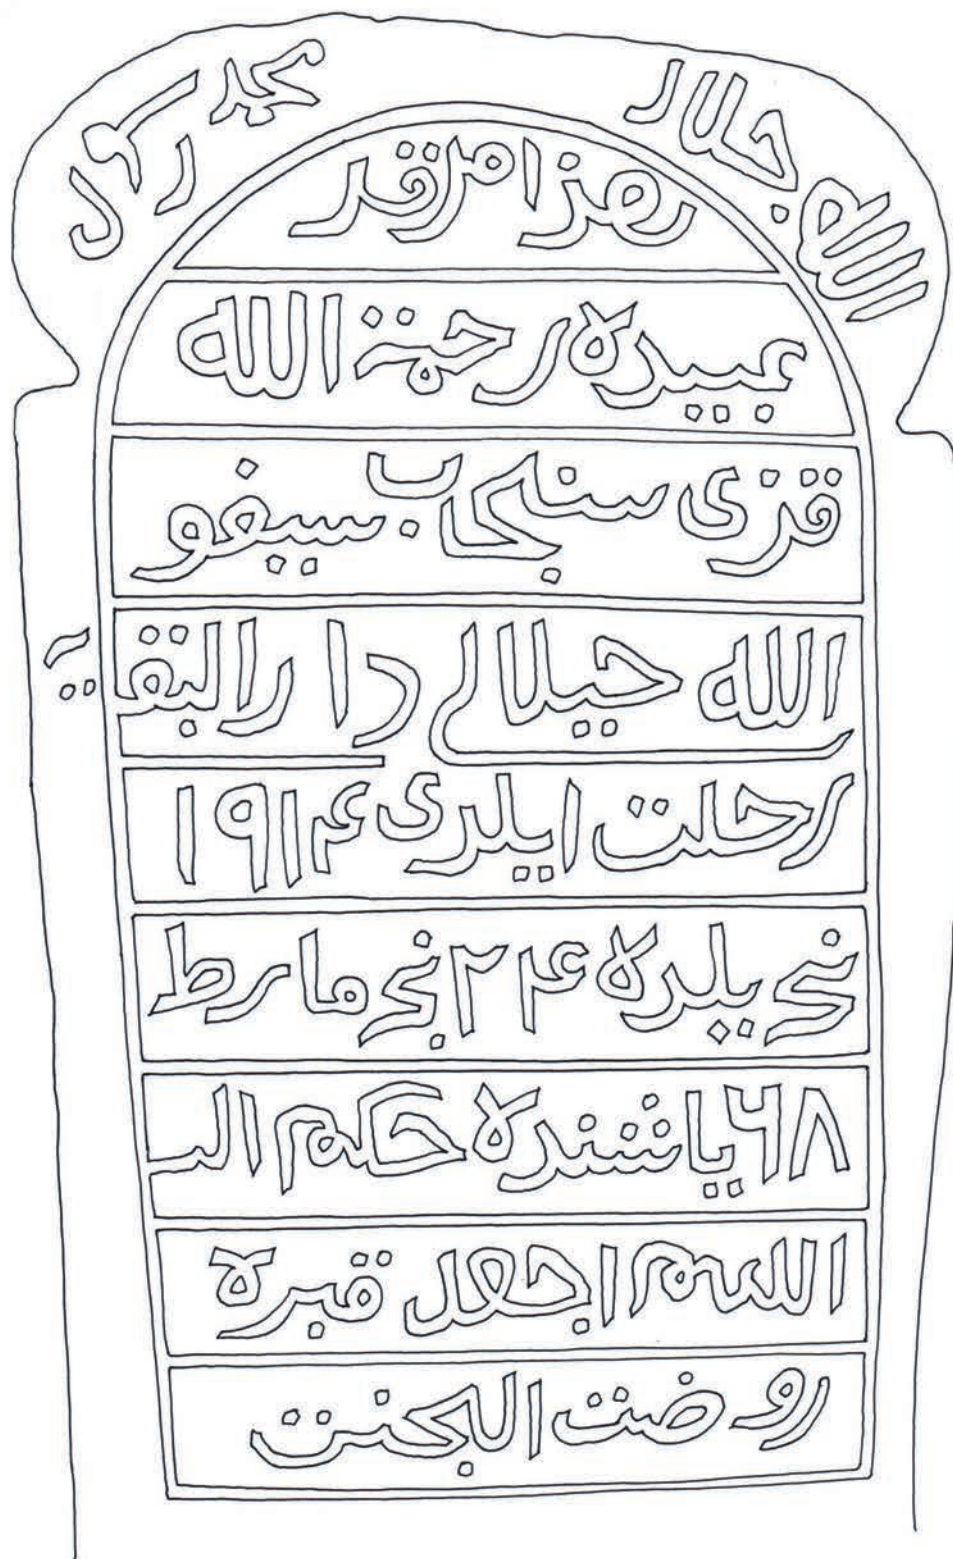 الله جلال
محمد رسول
هزا مرقد
عبیده رحمة الله
قزی سنجاب سیفو
الله جیلالی دار البقیـ
رحلت ایلدی ۱۹۱۴
نجی یلده ۲۴ نجی مارط
۶۸ یاشنده حکم الـ
اللهم اجعل قبره
روضت الجنت